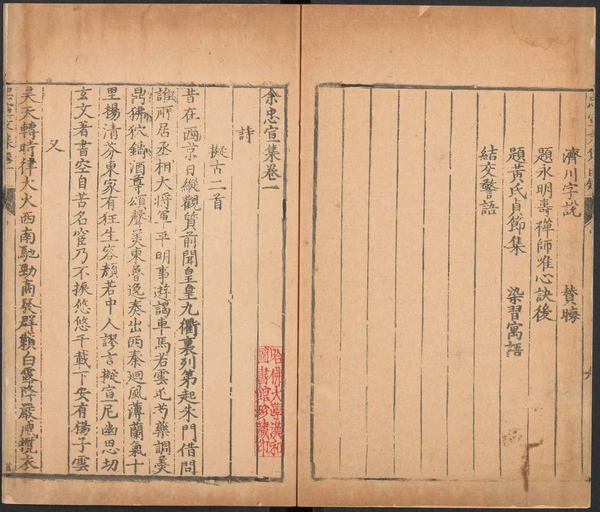 濟川字説　贊晦
題永明壽禪師唯心訣後
題黃氏貞節集　染習寓語
結交警語
余忠宣集卷一
詩
擬古二首
昔在西京日縱觀質前聞皇皇九衢裏列第起朱門借問
誰所居丞相大將軍平明事遊謁車馬若雲屯芍藥調羮
鼎狒狖鑄酒尊頌聲美東魯逸奏出西秦迴風薄蘭氣十
里揚清芬東家有狂生容頗若中人謬言擬宣尼幽思切
玄文著書空自苦名宦乃不振悠悠千載下安有楊子雲
又
昊天轉時律大火西南馳勁商發群籟白露降嚴
哈佛大學漢和
圖書館珍藏印